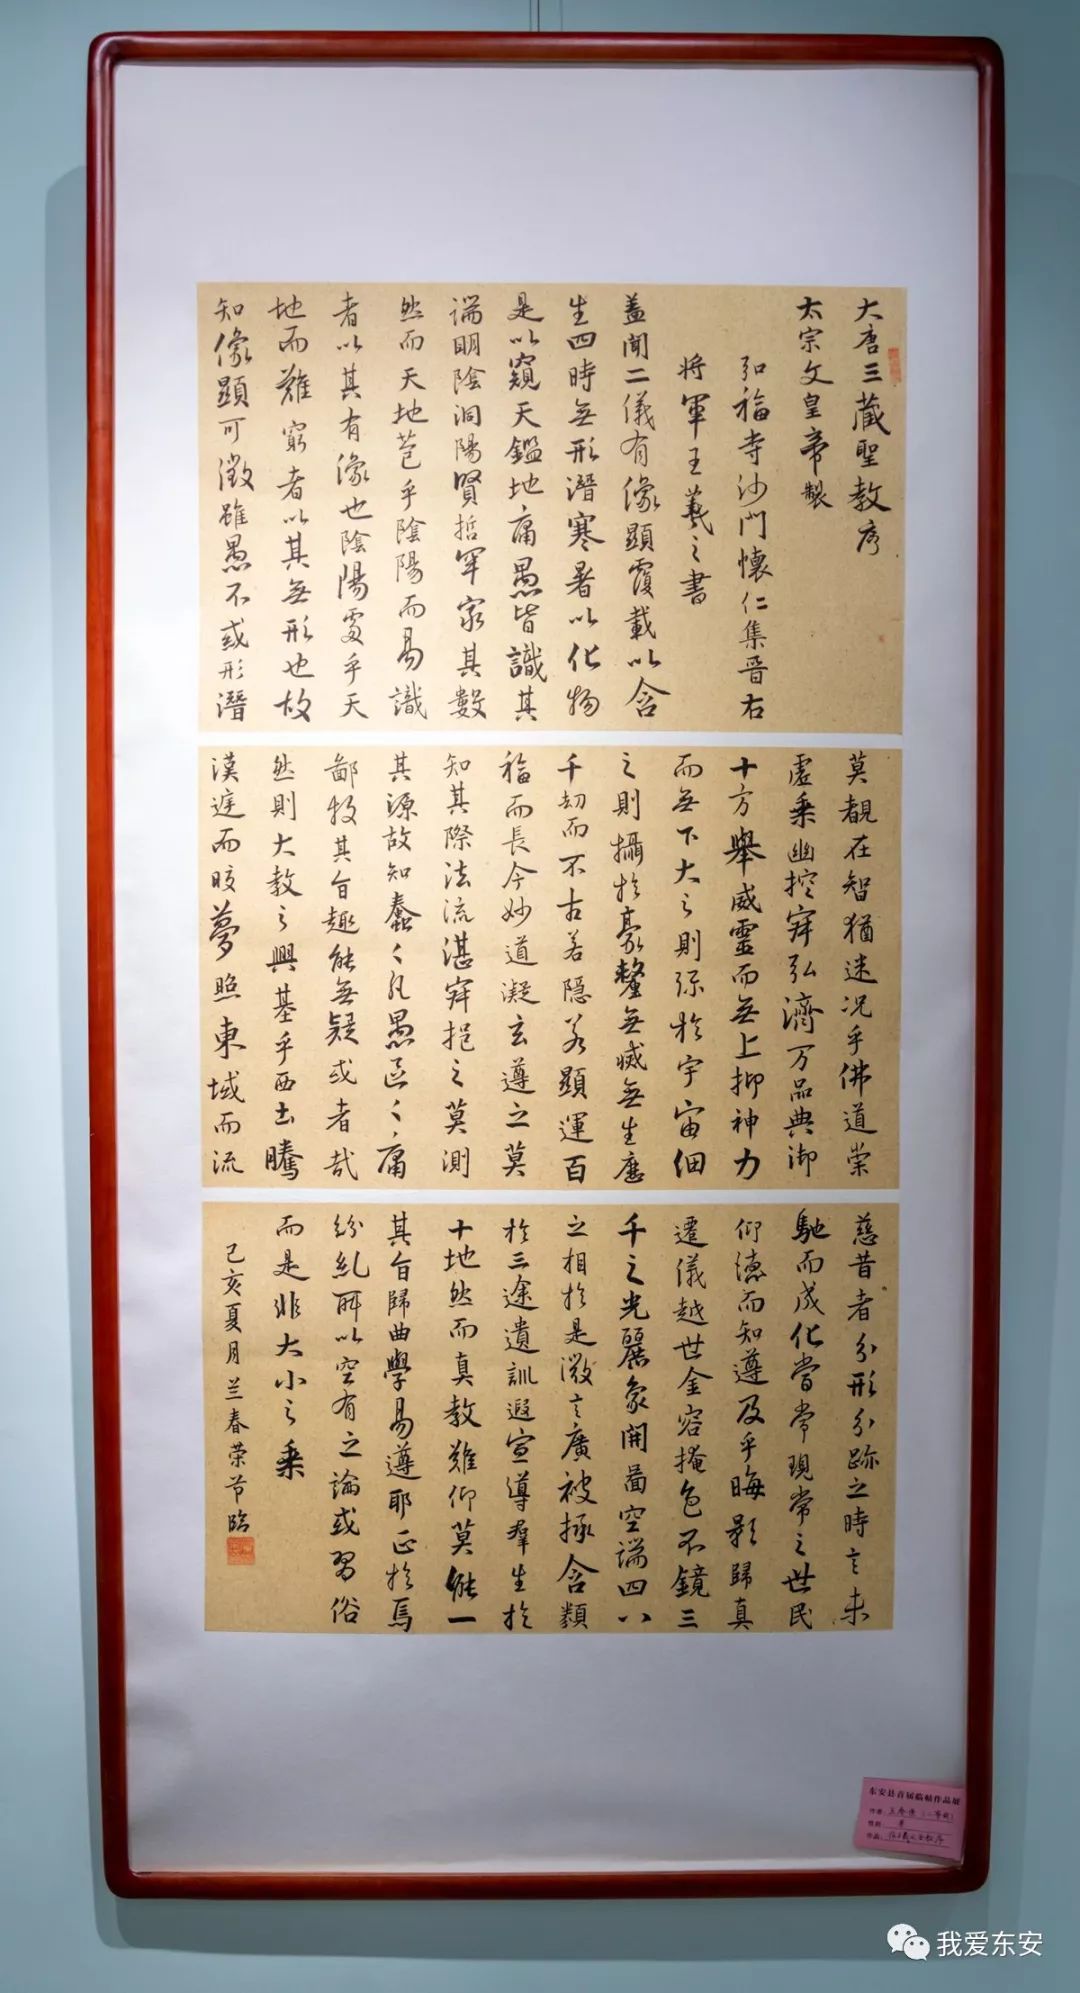 大唐三藏聖教序
太宗文皇帝製
弘福寺沙門懷仁集晉右
將軍王羲之書
蓋聞二儀有像顯覆載以含
生四時無形潛寒暑以化物
是以窺天鑑地庸愚皆識其
端明陰洞陽賢哲罕窮其數
然而天地苞乎陰陽而易識
者以其有像也陰陽處乎天
地而難窮者以其無形也故
知像顯可徵雖愚不惑形潛
莫覩在智猶迷况乎佛道崇
虛乘幽控寂弘濟万品典御
十方舉威靈而無上抑神力
而無下大之則彌於宇宙細
之則攝於豪釐無滅無生歷
千劫而不古若隱若顯運百
福而長今妙道凝玄遵之莫
知其際法流湛寂挹之莫測
其源故知蠢〻凡愚區〻庸
鄙投其旨趣能無疑或者哉
然則大教之興基乎西土騰
漢庭而皎夢照東域而流
慈昔者分形分跡之時言未
馳而成化當常現常之世民
仰德而知遵及乎晦影歸真
遷儀越世金容掩色不鏡三
千之光麗象開圖空端四八
之相於是微言廣被拯含類
於三途遺訓遐宣導群生於
十地然而真教難仰莫能一
其旨歸曲學易遵耶正於焉
紛糺所以空有之論或習俗
而是非大小之乘
己亥夏月兰春荣节临
东安县首届临帖作品展
作者:
性别:
作品:
我爱东安